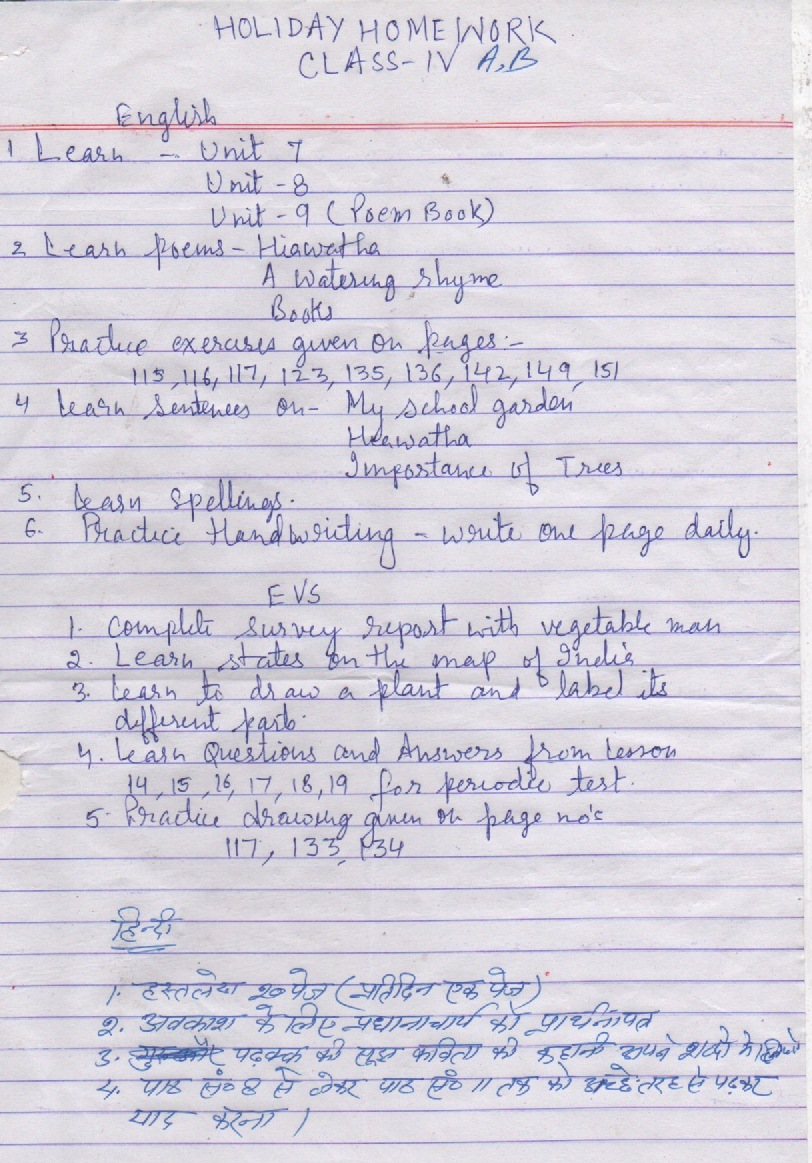 HOLIDAY HOME WORK
CLASS-IV A,B
English
1 Learn - Unit 7
Unit - 8
Unit - 9 (Poem Book)
2 Learn poems - Hiawatha
A Watering rhyme
Books
3 Practice exercises given on pages:-
115, 116, 117, 123, 135, 136, 142, 149, 151
4 Learn Sentences on - My school garden
Heawatha
Importance of Trees
5. Learn Spellings.
6. Practice Handwriting - write one page daily.
EVS
1. Complete survey report with vegetable man
2. Learn states on the map of India
3. Learn to draw a plant and label its
different parts.
4. Learn Questions and Answers from lesson
14, 15, 16, 17, 18, 19 for periodic test.
5. Practice drawing given on page no's
117, 133, 134
हिन्दी
1. हस्तलेख २० पेज (प्रतिदिन एक पेज)
2. अवकाश के लिए प्रधानाचार्य को प्रार्थनापत्र
3. पढ़क्कू की सूझ कविता की कहानी अपने शब्दों में लिखो
4. पाठ सं० 8 से लेकर पाठ सं० 11 तक को अच्छे तरह से पढ़कर
याद करना।